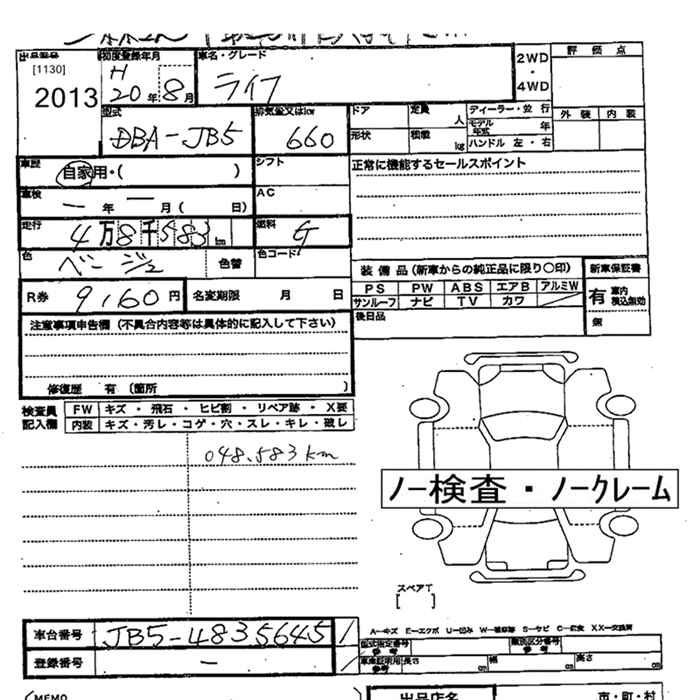 出品番号
[1130]
2013
初度登録年月
H
20 年 8 月
車名・グレード
ライフ
2WD
・
4WD
評価点
外装 内装
型式
DBA-JB5
排気量又はkw
660
ドア
定員
人
形状
積載
kg
ディーラー・並行
モデル年式 年
ハンドル 左・右
車歴
自家用・( )
シフト
正常に機能するセールスポイント
車検
ー 年 ー 月 ( 日)
AC
走行
4万8千583 km
燃料
G
色
ベージュ
色替
色コード
装備品(新車からの純正品に限り○印)
PS PW ABS エアB アルミW
サンルーフ ナビ TV カワ
新車保証書
有 車内 後込無効
無
後日品
R券
9,160 円
名変期限 月 日
注意事項申告欄(不具合内容等は具体的に記入して下さい)
修復歴 有(箇所 )
検査員
記入欄
FW キズ・飛石・ヒビ割・リペア跡・X要
内装 キズ・汚レ・コゲ・穴・スレ・キレ・破レ
048.583km
ノー検査・ノークレーム
スペアT
[ ]
車台番号
JB5-4835645
登録番号
ー
A-キズ E-エクボ U-凹み W-補修跡 S-サビ C-腐食 XX-交換済
型式指定番号
参考
類別区分番号
参考
車庫証明用
参考
長さ cm
幅 cm
高さ cm
(MEMO
出品店名
市・町・村